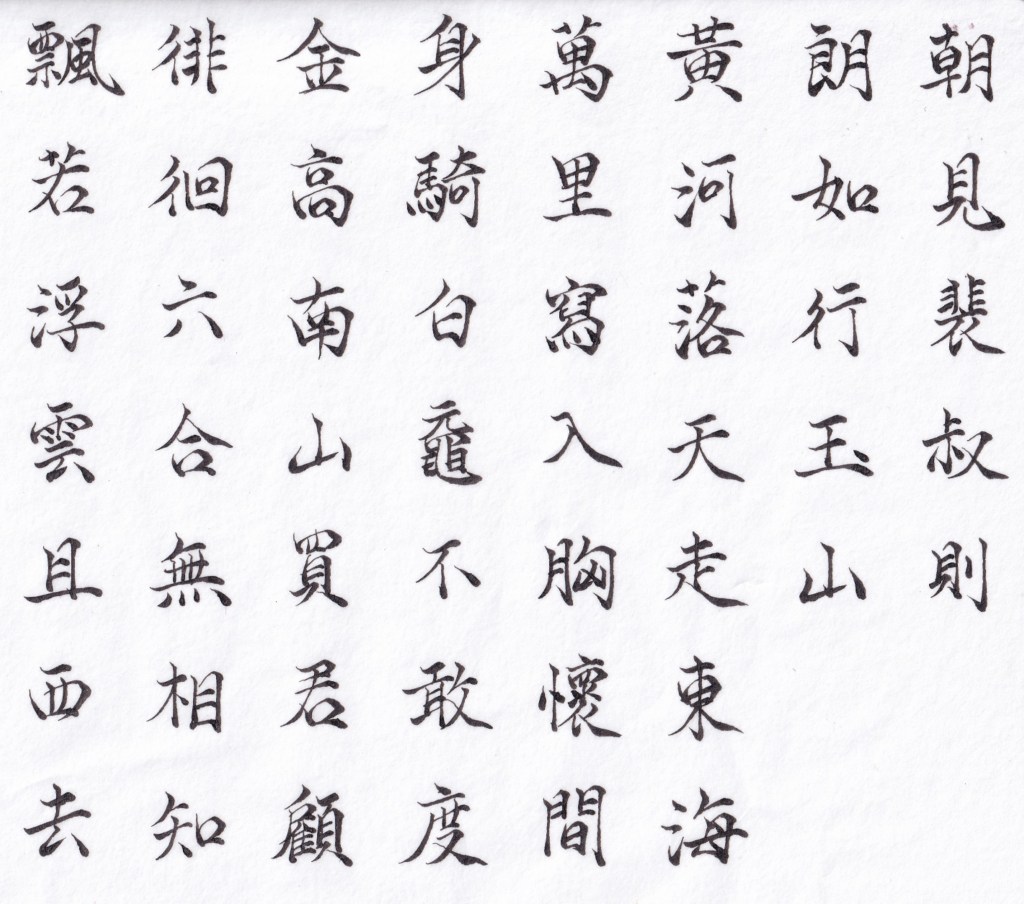 朝見裴叔則
朗如行玉山
黃河落天走東海
萬里寫入胸懷間
身騎白黿不敢度
金高南山買君顧
徘徊六合無相知
飄若浮雲且西去